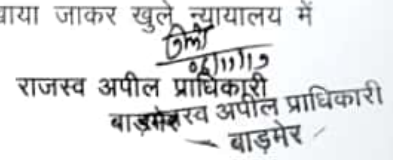 वाया जाकर खुले न्यायालय में
06/11/19
राजस्व अपील प्राधिकारी
बाड़मेर राजस्व अपील प्राधिकारी
बाड़मेर